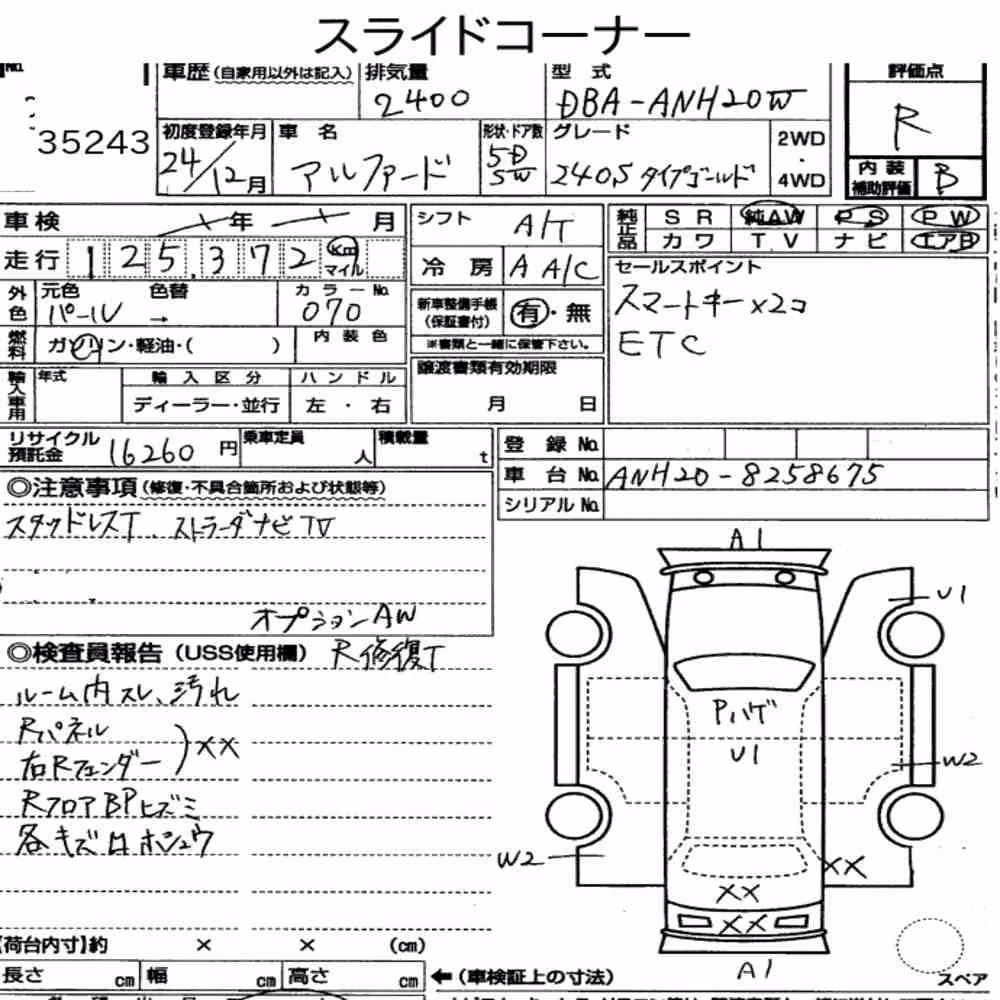 スライドコーナー
No.
35243
車歴(自家用以外は記入)
排気量
2400
型式
DBA-ANH20W
評価点
R
内装補助評価
B
初度登録年月
24/12月
車名
アルファード
形状・ドア数
5D
5W
グレード
240S タイプゴールド
2WD
・
4WD
車検
年
月
走行
125,372
Km
マイル
シフト
A/T
冷房
A A/C
純正品
SR
純AW
PS
PW
カワ
TV
ナビ
エアB
外色
元色
パール
色替
→
カラーNo.
070
新車整備手帳
(保証書付)
有・無
※書類と一緒に保管下さい。
セールスポイント
スマートキー×2コ
ETC
燃料
ガソリン・軽油・( )
内装色
輸入車用
年式
輸入区分
ハンドル
ディーラー・並行
左・右
譲渡書類有効期限
月 日
リサイクル
預託金
16260円
乗車定員
人
積載量
t
登録No.
車台No.
ANH20-8258675
シリアルNo.
◎注意事項(修復・不具合箇所および状態等)
スタッドレスT、ストラーダナビTV
オプションAW
◎検査員報告(USS使用欄)
R修復T
ルーム内スレ、汚れ
Rパネル
右Rフェンダー
)××
RフロアBPヒズミ
各キズ凹ホシュウ
A1
U1
Pハゲ
U1
W2
W2
××
××
××
A1
スペア
【荷台内寸】約 × × (cm)
長さ cm 幅 cm 高さ cm
←(車検証上の寸法)